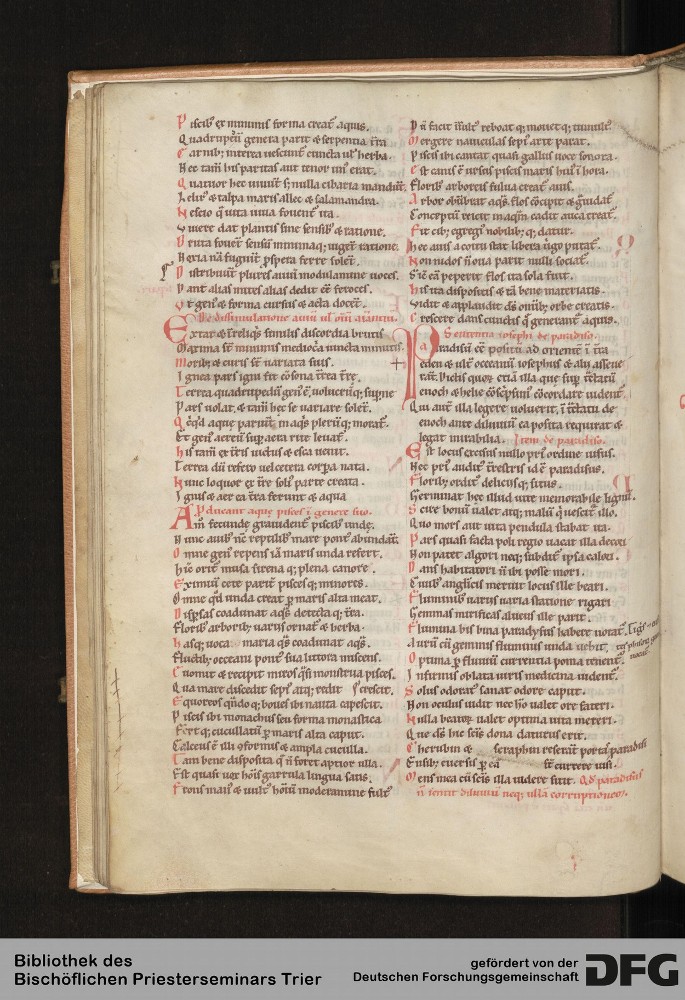 Piscib; ex minimis forma creat aquis.
Quadrupedū genera parit & serpentia tr̄ra
Carnib; interea uescunt cuncta ul' herba.
Hec tam̄ his paritas aut tenor un' erat.
Quatuor hec uiuūt s; nulla cibaria mandūt.
& talpa maris allec & salamandra.
Nescio q̄ uita uiua fouent' ita.
Viuere dat plantis sine sensib; & ratione.
ratione.
ferre solet.
plures auiū modulamine uoces.
Dant alias mites alias dedit eē feroces.
Vt gen' & forma cursus & acta docet.
De dissimulatione auiū
Extat & reliq̄s similis discordia brutis
Maxima st̄ minimis mediocria iuncta minutis
Morib; & euris st̄ uariata suis.
Ignea pars igni fit cōsona tr̄rea tr̄re.
Terrea quadrupedū gen' ē, uolucriūq; supne
Pars uolat, & tam̄ hec se uariare solet.
Q̄cq̄d aque pariūt, in aq̄s plerūq; morat.
Et gen' aereū sup aera rite leuat.
His tam̄ ex tr̄ris uictus & esca uenit.
Terrea dū refero uel cetera corp̄a nata.
Nunc loquor ex tr̄re sola parte creata.
Ignis & aer ea tr̄ra ferunt & aqua
Pducant aque pisces ī genere suo.
Am fecunde grauident piscib; unde.
Nunc auib' nc̄ reptilib' mare pont' abundat.
Omne gen' repens iā maris unda refert.
Hic orit' musa sirena q; plena canore.
Eximiū cete parit pisces q; minores.
Omne qd̄ unda creat p̄ maris alta meat.
Dispsas coadunat aq̄s detecta q; tr̄ra.
Florib; arborib; uariis ornat & herba.
Hasq; uocat maria q̄s coadunat aq̄s.
Fluctib; occeani pont' sua littora miscens.
Euomit & recipit miros q̄si monstrua pisces.
Qua mare discedit sepi' atq; redit crescit.
Equoreos qn̄doq; boues ibi nauta capescit.
Piscis ibi monachus seu forma monastica
Fert q; cucullatū p̄ maris alta caput.
Calceus ē illi 9formis & ampla cuculla.
Tam bene disposita q̄ n̄ foret aptior ulla.
Est quasi uox hoīs garrula lingua satis.
Frons mai' & uult' hoīm moderamine fult'
D n̄ facit īsult' reboat q; mouet q; tumult'
Mergere nauiculas sepi' arte parat.
Piscis ibi cantat quasi gallus uoce sonora.
Est canis ē ursus piscis maris hui' ī hora.
Florib' arboreis siluua creat' auis.
Arbor obūbrat aq̄s. flos cōcipit & g̃uidat.
Conceptū reicit in aq̄m, cadit auca creat'.
Fit cib; egregi' nobilib; q; datur.
Hec auis a coitu stat libera uirgo putat.
Non nidos n̄ oua parit nulli sociat.
Sic eā peperit flos ita sola fuit.
His ita dispositis & tā bene materiatis.
Vidit & applaudit dn̄s om̄ib; orbe creatis.
Crescere dans cunctis q̄ generant' aquis.
Sententia iosephi de paradiso.
Paradisū eē positū ad orientē ī tr̄ra
eden & ul't occeanū iosephus & alii asseue
rāt. Vbi si quis etiā illa que sup̄ tr̄ctatū
enoch & helie cōscpsim' cōcordare uident'.
Qui aut illa legere uoluerit, ī tr̄ctatu de
enoch ante diluuiū ea posita requirat &
legat mirabilia. Item de paradiso.
Est locus excelsus nullo pri' ordine uisus.
Hec pri' audit' tr̄restris id ē paradisus.
Florib; ordit' deliciisq; situs.
Germinat hec illud uite memorabile lignū.
Scire bonū ualet atq; malū q̄ uescit' illo.
Quo mors aut uita pendula stabat ita.
Pars quasi facta poli regio uacat illa decori
Non patet algori neq; subdit' ipsa calori.
Dans habitatori n̄ ibi posse mori.
Ciuib' anglicis meruit locus ille beari.
Fluminib' uariis uaria statione rigari
Gemmas mirificas aluei' ille parit.
Flumina bis bina paradysus habere notat.
Aurū cū gemmis fluminis unda uehit.
Optima p̄ fluuiū currentia poma tenent'.
Infirmis oblata uiris medicina uident'.
Solus odorat' sanat odore caput.
Non oculus uidit nec h̄o ualet ore fateri.
Nulla beatoꝝ ualet optima uita mereri.
Que ds̄ hic seis dona daturus erit.
Cherubin & seraphin reserāt portā paradisi
Ensib; euersis p̄ eā st̄ currere uisi.
Mens mea cū seis illa uidere sitit. Qd̄ paradisus
n̄ sentit diluuiū neq; ullā corruptionem.
Bibliothek des
Bischöflichen Priesterseminars Trier
gefördert von der
Deutschen Forschungsgemeinschaft
DFG